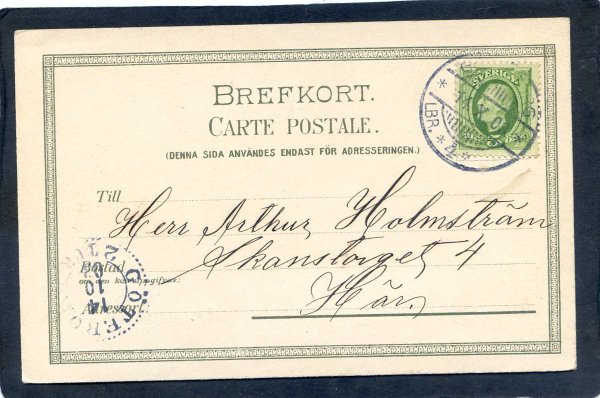 BREFKORT.
CARTE POSTALE.
(DENNA SIDA ANVÄNDES ENDAST FÖR ADRESSERINGEN.)
SVERIGE
5
LBR.
Till
Herr Arthur Holmström
Skanstorget 4
Här.
Bostad
om den kan uppgifvas:
Adressort:
GÖTEBORG
14
10